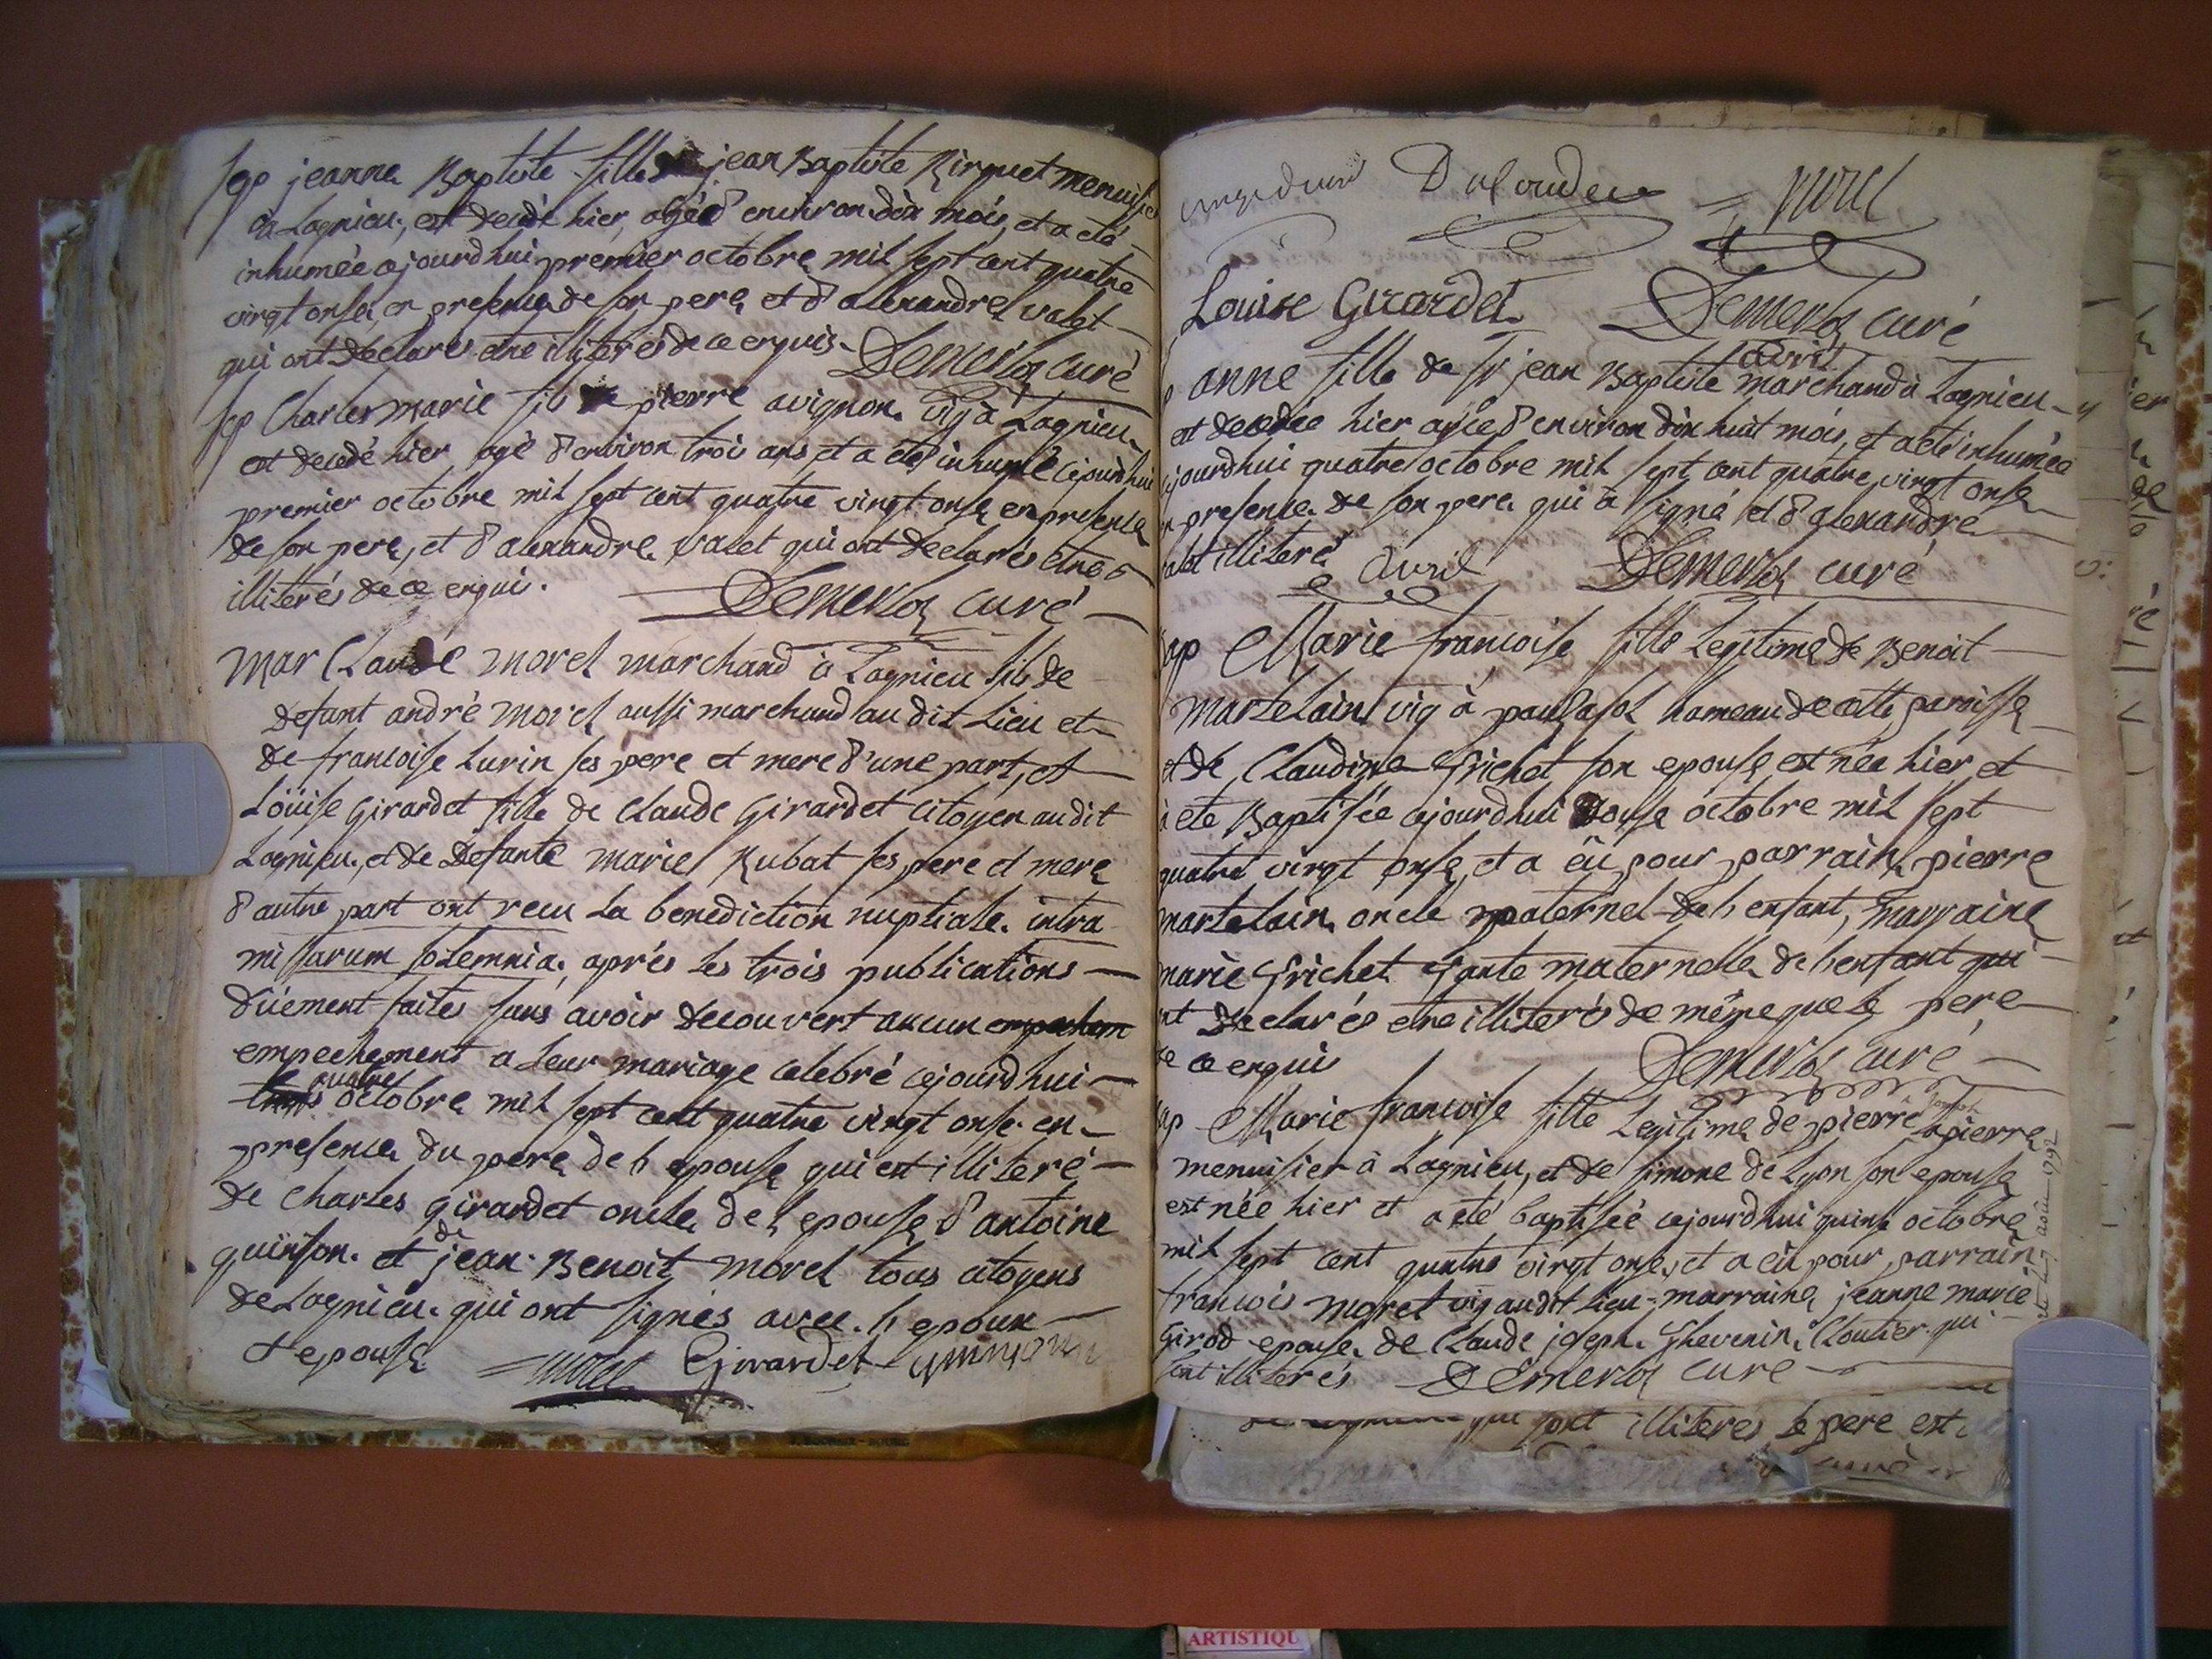 sep jeanne Baptiste fille jean Baptiste Rinquet menuisier
à Lagnieu, est decedé hier, agée d'environ dix mois, et a eté
inhumée cejourdhui premier octobre mil sept cent quatre
vingt onse, en presence de son pere et d'alexandre valet
qui ont declarés etre illiterés de ce enquis. Demerloz curé
sep Charles marie fils de pierre avignon vig à Lagnieu
est decedé hier agé d'environ trois ans, et a eté inhumé cejourdhui
premier octobre mil sept cent quatre vingt onse en presence
de son pere, et d'alexandre valet qui ont declarés etre
illiterés de ce enquis. Demerloz curé
mar Claude morel marchand à Lagnieu fils de
defunt andré morel aussi marchand au dit Lieu et
de francoise Lurin ses pere et mere d'une part, et
Loüise Girardet fille de Claude Girardet citoyen au dit
Lagnieu, et de Defunte marie Rubat ses pere et mere
d'autre part ont recu La benediction nuptiale intra
missarum solemnia, aprés Les trois publications
düement faites sans avoir decouvert aucun empechem
empechement a Leur mariage celebré cejourdhui
trois quatre octobre mil sept cent quatre vingt onse en
presence du pere de l'epouse qui est illiteré
de Charles girardet oncle de l'epouse d'antoine
quinson et de jean Benoit morel tous citoyens
de Lagnieu qui ont signés avec l'epoux
et epouse morel Girardet quinson
morel
Louise Girardet Demerloz curé
anne fille de Sr jean Baptiste avril marchand à Lagnieu
est decedée hier agée d'environ dix huit mois, et a eté inhumée
cejourdhui quatre octobre mil sept cent quatre vingt onse
en presence de son pere qui a signé et d'alexandre
valet illiteré avril Demerloz curé
bap Marie francoise fille Legitime de Benoit
martelain vig à hameau de cette paroisse
et de Claudine frichet son epouse est née hier et
a eté Baptisée cejourdhui douse octobre mil sept
quatre vingt onse, et a eû pour parrain pierre
martelain oncle paternel de l'enfant, marraine
marie frichet tante maternelle de l'enfant qui
ont declarés etre illiterés de même que le pere
de ce enquis Demerloz curé
bap Marie francoise fille Legitime de pierre joseph Lapierre
menuisier à Lagnieu, et de simone de Lyon son epouse
est née hier et a eté baptisée cejourdhui quinse octobre
mil sept cent quatre vingt onse, et a eû pour parrain
francois morel vig audit lieu marraine jeanne marie
Girod epouse de Claude joseph Thevenin Cloutier qui
sont illiterés Demerloz curé
qui sont illiterés le pere est
ARTISTIQU